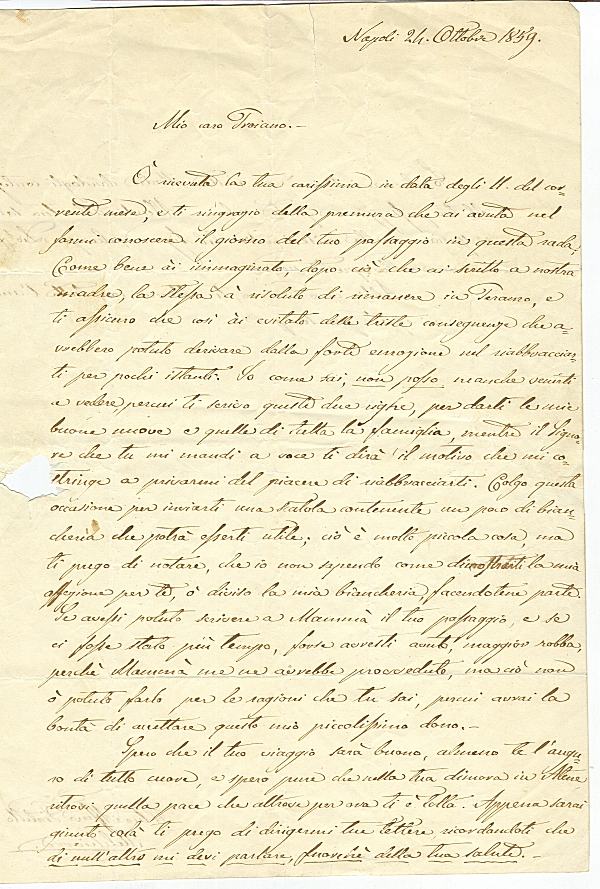 Napoli 24. Ottobre 1859.
Mio caro Troiano.—
Ò ricevuta la tua carissima in data degli 11. del cor=
rente mese, e ti ringrazio della premura che ai avuta nel
farmi conoscere il giorno del tuo passaggio in questa rada.
Come bene ài immaginato, dopo ciò che ai scritto a nostra
madre, la stessa à risoluto di rimanere in Teramo, e
ti assicuro che così ài evitato delle triste conseguenze che a=
vrebbero potuto derivare dalla forte emozione nel riabbracciar=
ti per pochi istanti. Io come sai, non posso neanche venirti
a vedere, percui ti scrivo queste due righe, per darti le mie
buone nuove e quelle di tutta la famiglia, mentre il Signo=
re che tu mi mandi a voce ti dirà il motivo che mi co=
stringe a privarmi del piacere di riabbracciarti. Colgo questa
occasione per inviarti una scatola contenente un poco di bian=
cheria che potrà esserti utile; ciò è molto piccola cosa, ma
ti prego di notare, che io non sapendo come dimostrarti la mia
affezione per te, ò diviso la mia biancheria, facendotene parte.
Se avessi potuto scrivere a Mammà il tuo passaggio, e se
ci fosse stato più tempo, forse avresti avuto, maggior robba,
perchè Mammà me ne avrebbe provveduto, ma ciò non
ò potuto farlo per le ragioni che tu sai, percui avrai la
bontà di accettare questo mio piccolissimo dono.—
Spero che il tuo viaggio sarà buono, almeno te l'augu=
ro di tutto cuore, e spero pure che nella tua dimora in Atene
ritrovi quella pace che altrove per ora ti è tolta. Appena sarai
giunto colà ti prego di dirigermi tue lettere ricordandoti che
di null'altro mi devi parlare, fuorchè della tua salute.—